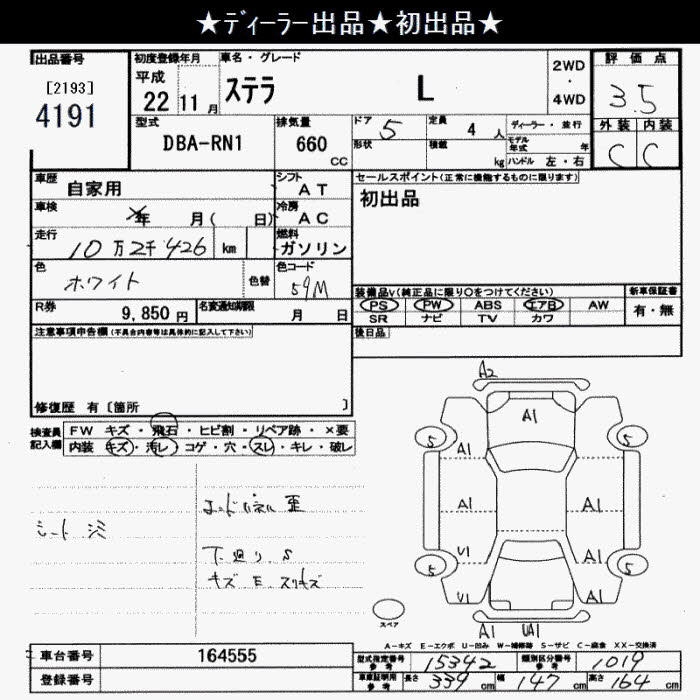 ★ディーラー出品★初出品★
出品番号
[2193]
4191
初度登録年月
平成
22 11 月
車名・グレード
ステラ L
2WD
・
4WD
評価点
3.5
外装 内装
C C
型式
DBA-RN1
排気量
660
CC
ドア 5
形状
定員 4 人
積載 kg
ディーラー・並行
モデル年式 年
ハンドル 左・右
車歴 自家用
シフト AT
車検 年 月( 日)
冷房 AC
走行 10万2千426 km
燃料 ガソリン
色 ホワイト
色替
色コード 59M
R券 9,850円
名変通知期限 月 日
セールスポイント(正常に機能するものに限ります)
初出品
装備品V(純正品に限り○をつけてください)
PS PW ABS エアB AW
SR ナビ TV カワ
新車保証書
有・無
後日品
注意事項申告欄(不具合内容等は具体的に記入して下さい)
修復歴 有〔箇所 〕
検査員記入欄
FW キズ・飛石・ヒビ割・リペア跡・×要
内装 キズ・汚レ・コゲ・穴・スレ・キレ・破レ
シート シミ
下廻り S
キズ E スリキズ
A2
A1
5 5
A1
A1 A1
V1 A1
5 5
V1 A1
スペア
A1 UA1
A-キズ E-エクボ U-凹み W-補修跡 S-サビ C-腐食 XX-交換済
車台番号 164555
登録番号
型式指定番号 参考 15342
類別区分番号 参考 1019
車庫証明用 参考 長さ 339 cm 幅 147 cm 高さ 164 cm